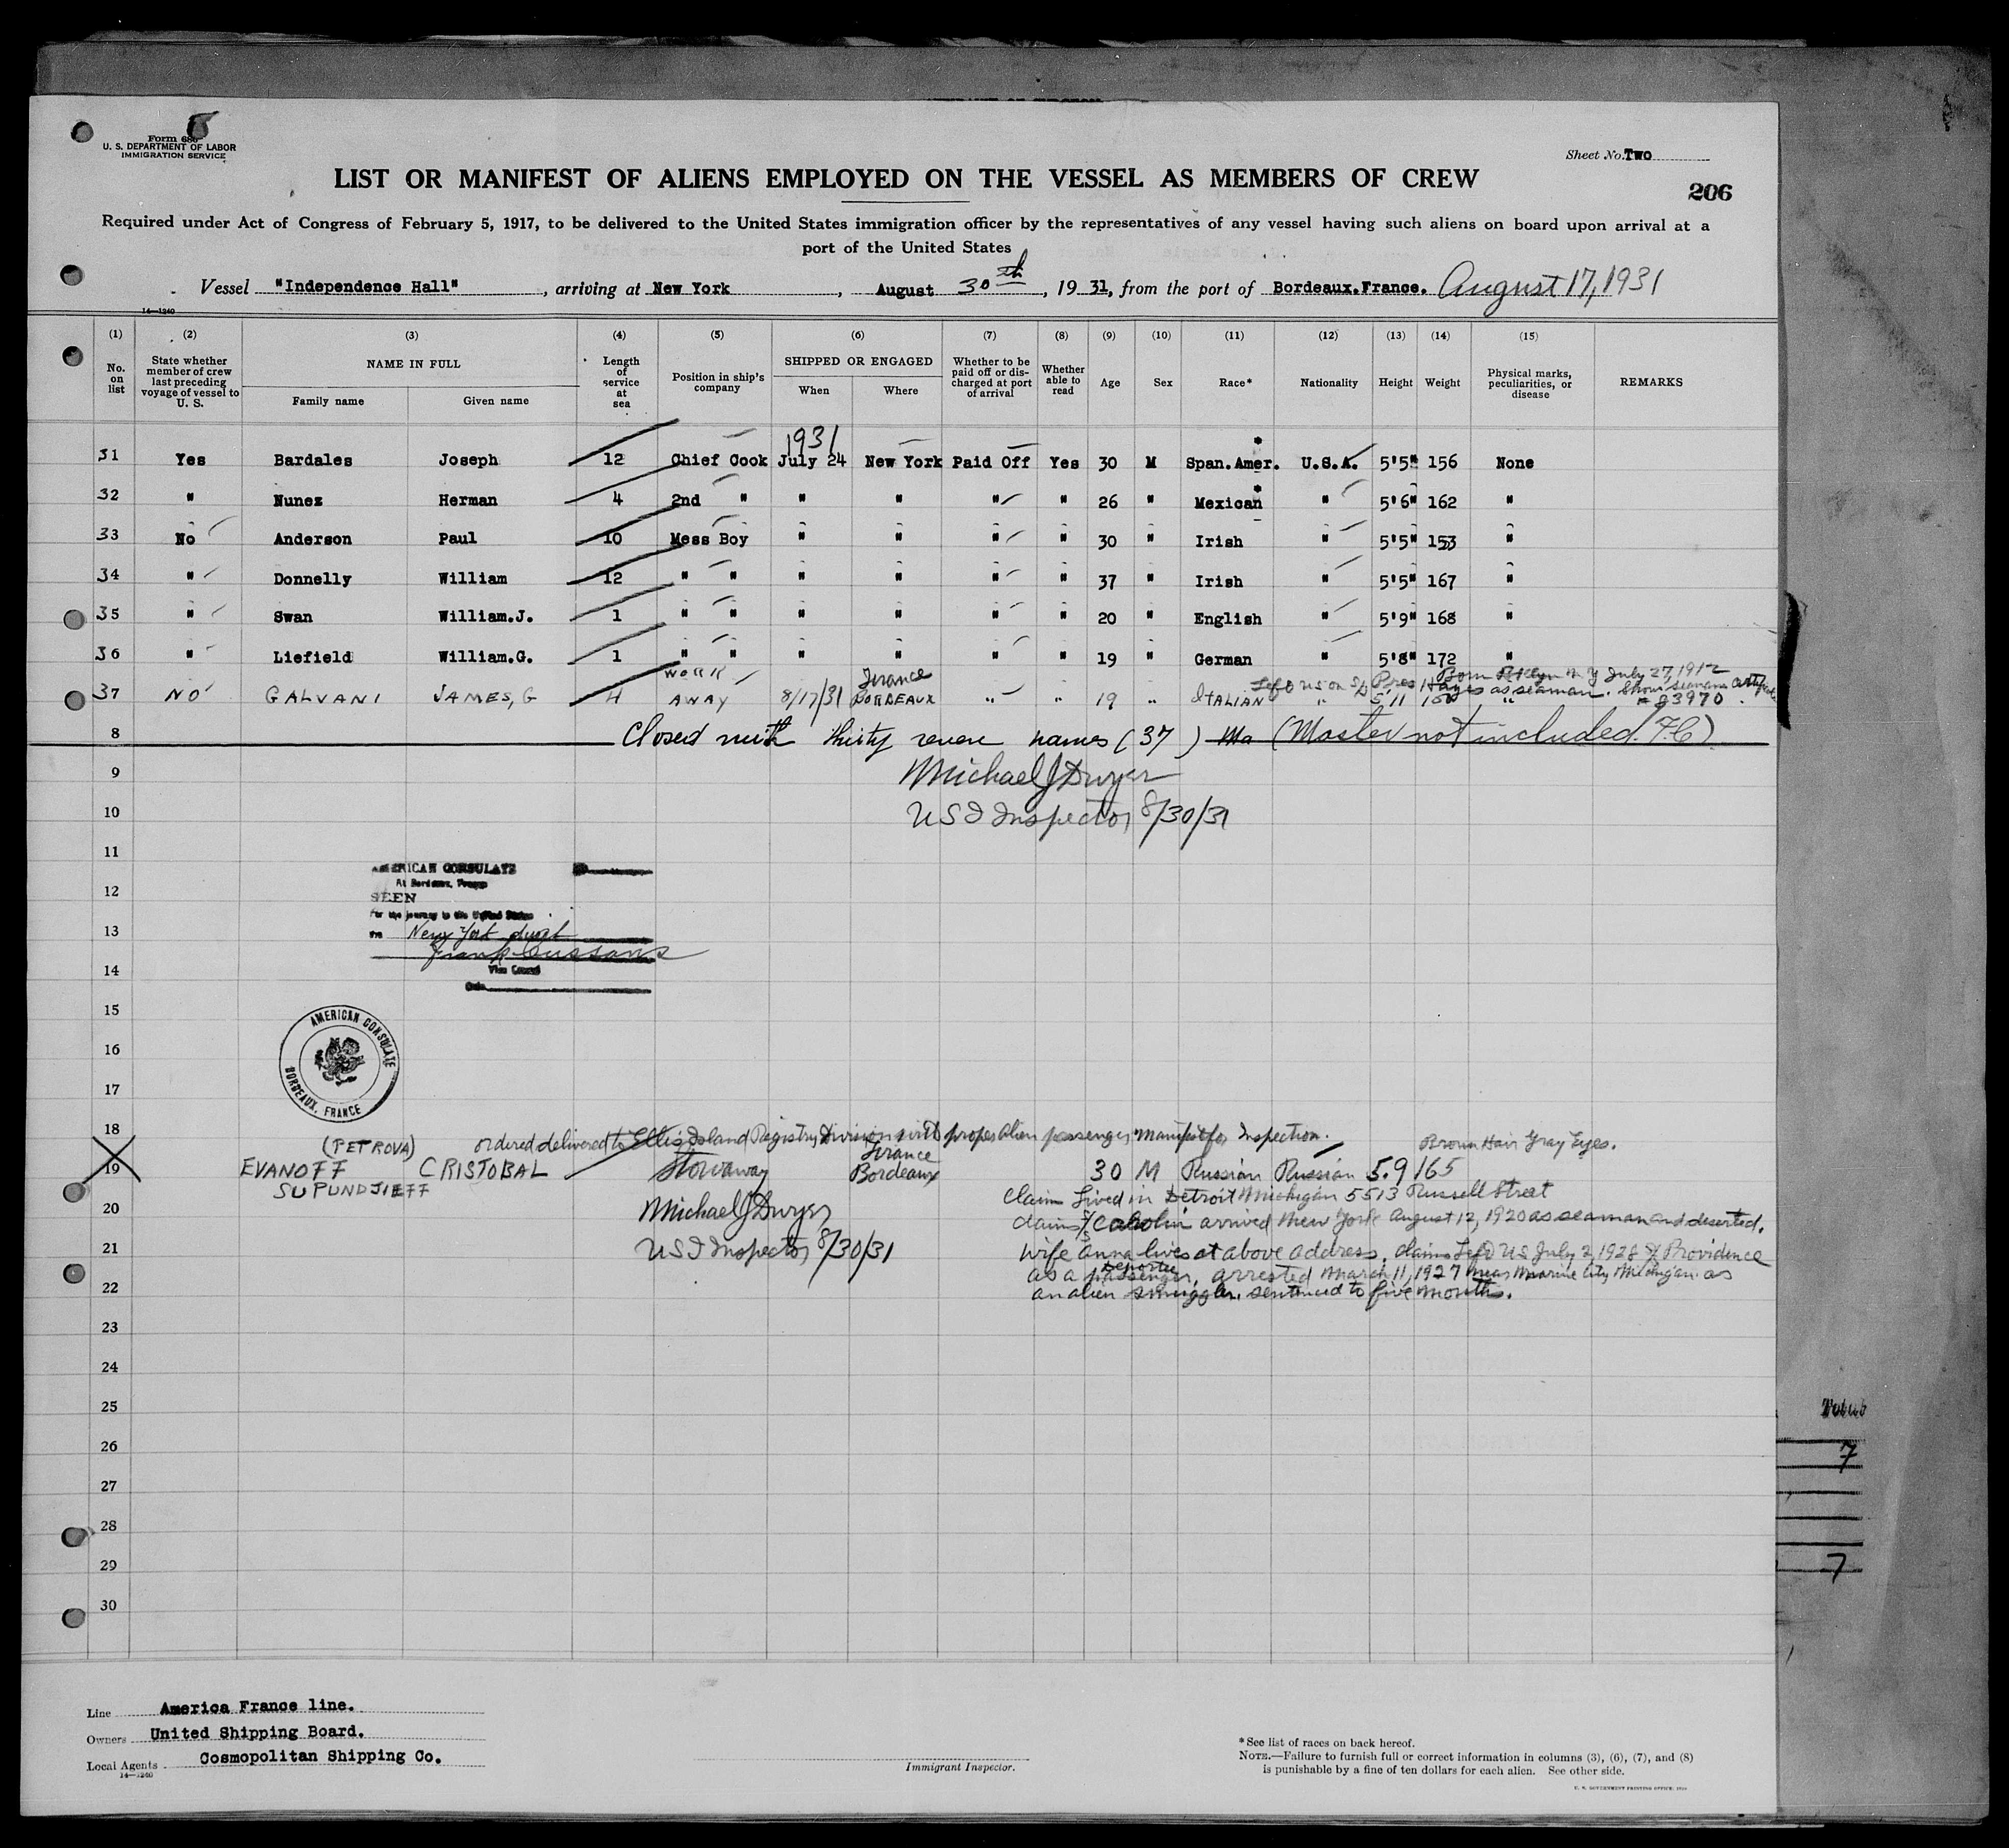 Form 680
U. S. DEPARTMENT OF LABOR
IMMIGRATION SERVICE
Sheet No. Two
LIST OR MANIFEST OF ALIENS EMPLOYED ON THE VESSEL AS MEMBERS OF CREW
206
Required under Act of Congress of February 5, 1917, to be delivered to the United States immigration officer by the representatives of any vessel having such aliens on board upon arrival at a
port of the United States
Vessel "Independence Hall", arriving at New York, August 30th, 1931, from the port of Bordeaux.France. August 17, 1931
14—1240
(1) (2) (3) (4) (5) (6) (7) (8) (9) (10) (11) (12) (13) (14) (15)
No. on list State whether member of crew last preceding voyage of vessel to U. S. NAME IN FULL Family name Given name Length of service at sea Position in ship's company SHIPPED OR ENGAGED When Where Whether to be paid off or discharged at port of arrival Whether able to read Age Sex Race* Nationality Height Weight Physical marks, peculiarities, or disease REMARKS
1931
31 Yes Bardales Joseph 12 Chief Cook July 24 New York Paid Off Yes 30 M Span.Amer. * U.S.A. 5'5" 156 None
32 " Nunez Herman 4 2nd " " " " " 26 " Mexican * " 5'6" 162 "
33 No Anderson Paul 10 Mess Boy " " " " 30 " Irish " 5'5" 153 "
34 " Donnelly William 12 " " " " " " 37 " Irish " 5'5" 167 "
35 " Swan William.J. 1 " " " " " " 20 " English " 5'9" 168 "
36 " Liefield William.G. 1 " " " " " " 19 " German " 5'8" 172 "
Born Bklyn N.Y July 27, 1912
Left US on S/S Pres Hayes as seaman. Show seamans Certificate
37 NO GALVANI JAMES, G 4 WORK AWAY 8/17/31 France BORDEAUX " " 19 " ITALIAN " 5'11 150 " # 83970.
8 Closed with thirty seven names (37) (Master not included. F.C)
9 Michael J Dwyer
10 US I Inspector 8/30/31
11
AMERICAN CONSULATE
At Bordeaux, France
12
SEEN
For the journey to the United States
13
New York direct
Frank Cussans
14
Vice Consul
15
AMERICAN CONSULATE
BORDEAUX, FRANCE
16
17
18
ordered delivered to Ellis Island Registry Division with proper alien passenger manifest for Inspection.
Brown Hair Gray Eyes.
(PETROVA)
19 EVANOFF CRISTOBAL Stowaway France Bordeaux 30 M Russian Russian 5.9 165
SUPUNDJIEFF
claim lived in Detroit Michigan 5513 Russell Street
20 Michael J Dwyer
claims S/S Carolin arrived New York August 12, 1920 as seaman and deserted.
21 US I Inspector 8/30/31
wife Anna lives at above address, claims Left US July 2, 1928 Providence
as a deportee passenger, arrested March 11, 1927 near Marine City Michigan as
22
an alien smuggler. sentenced to five months.
23
24
25
26
27
28
29
30
Totals
7
7
Line America France line.
Owners United Shipping Board.
Local Agents Cosmopolitan Shipping Co.
14—1240
Immigrant Inspector.
*See list of races on back hereof.
NOTE.—Failure to furnish full or correct information in columns (3), (6), (7), and (8)
is punishable by a fine of ten dollars for each alien. See other side.